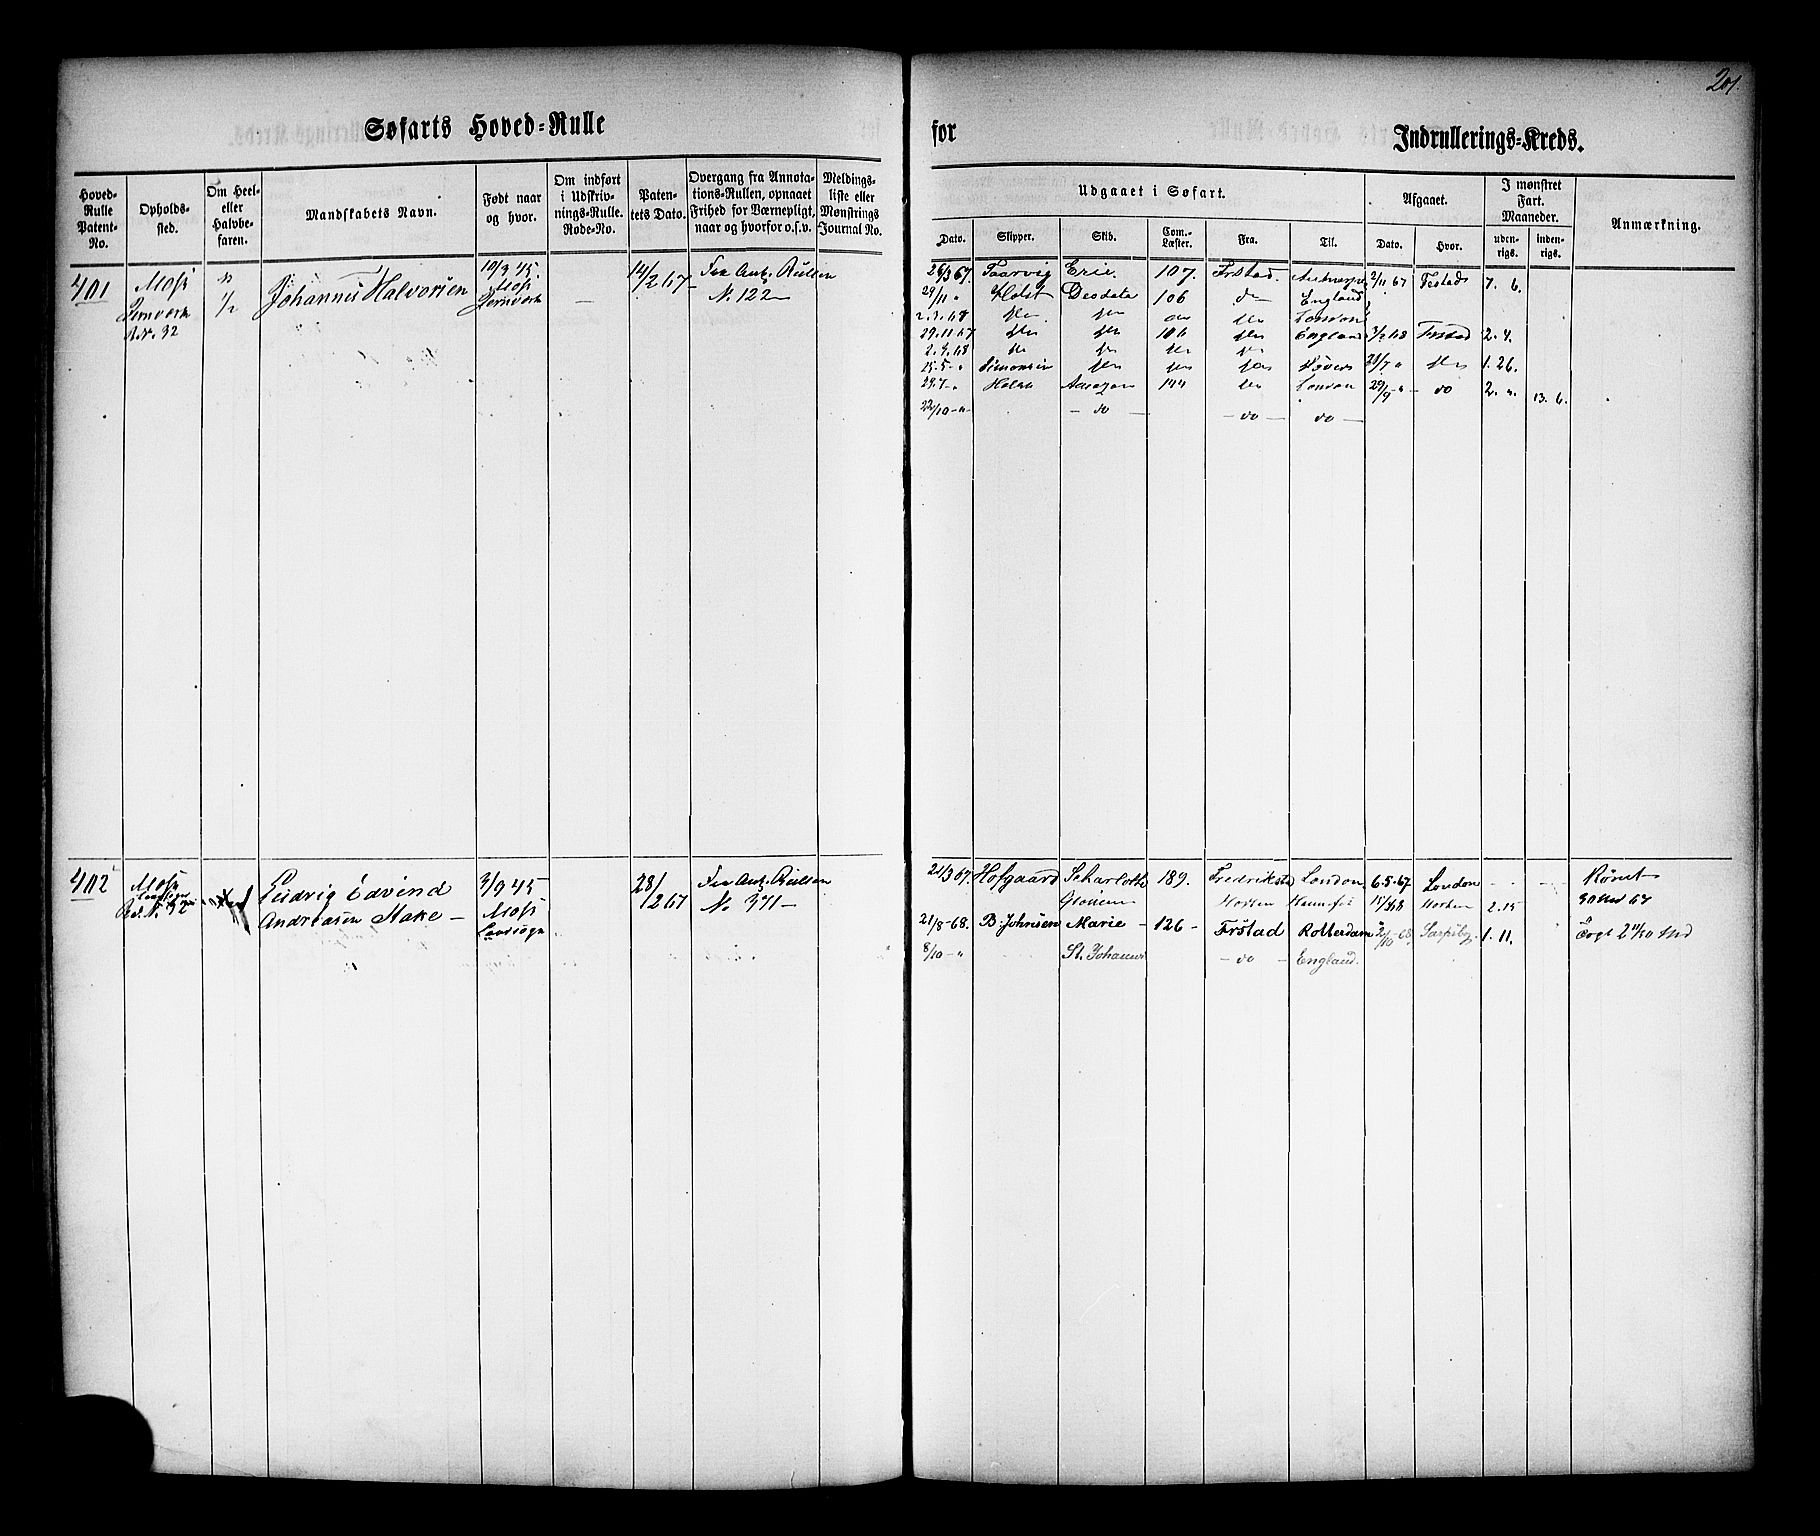 201.
Søfarts Hoved-Rulle
for
Indrullerings-Kreds.
Hoved-Rulle Patent-No.
Opholds-sted.
Om Heel- eller Halvbe-faren.
Mandskabets Navn.
Født naar og hvor.
Om indført i Udskriv-nings-Rulle. Rode-No.
Paten-tets Dato.
Overgang fra Annota-tions-Rullen, opnaaet Frihed for Værnepligt, naar og hvorfor o.s.v.
Meldings-liste eller Mønstrings Journal No.
Udgaaet i Søfart.
Dato.
Skipper.
Skib.
Com.-Læster.
Fra.
Til.
Afgaaet.
Dato.
Hvor.
I mønstret Fart. Maaneder.
uden-rigs.
inden-rigs.
Anmærkning.
401 Moss 1/2 Johannes Halvorsen 10/9 45. Moss 14/2 67 Fra Ant. Rullen
Jernverk Jernverk — N. 122 —
R.N. 32
26/3 67 Taarvig Erie. 107. Frstad 2/11 67 Frstad 7. 6.
29/11 " Holst Deodata 106 do England
2.3.68 do do do do London
29.11.67 do do 106 do England 3/2 68 Frstad 2. 4.
2.3.68 do do do do
25.5 - " Simonsen do do do 21/7 " do 1. 26.
29.7 - " Holst 144 do London 29/9 - " do 2. 13. 6.
22/10 - " — do — — do — do —
402 Moss Ludvig Edvind 3/9 45 28/2 67 Fra Ant. Rullen
R.N. 32 Andreasen Hake — Moss N. 371 —
Landsogn
21/3 67. Hofgaard Scharlotte 189. Fredrikstad London 6.5.67 London - - Rømt
Horten Horten 2. 15
21/8 - 68. B. Johnsen Marie - 126 - Frstad Rotterdam 1. 11.
8/10 - " St. Johannes - do - England.